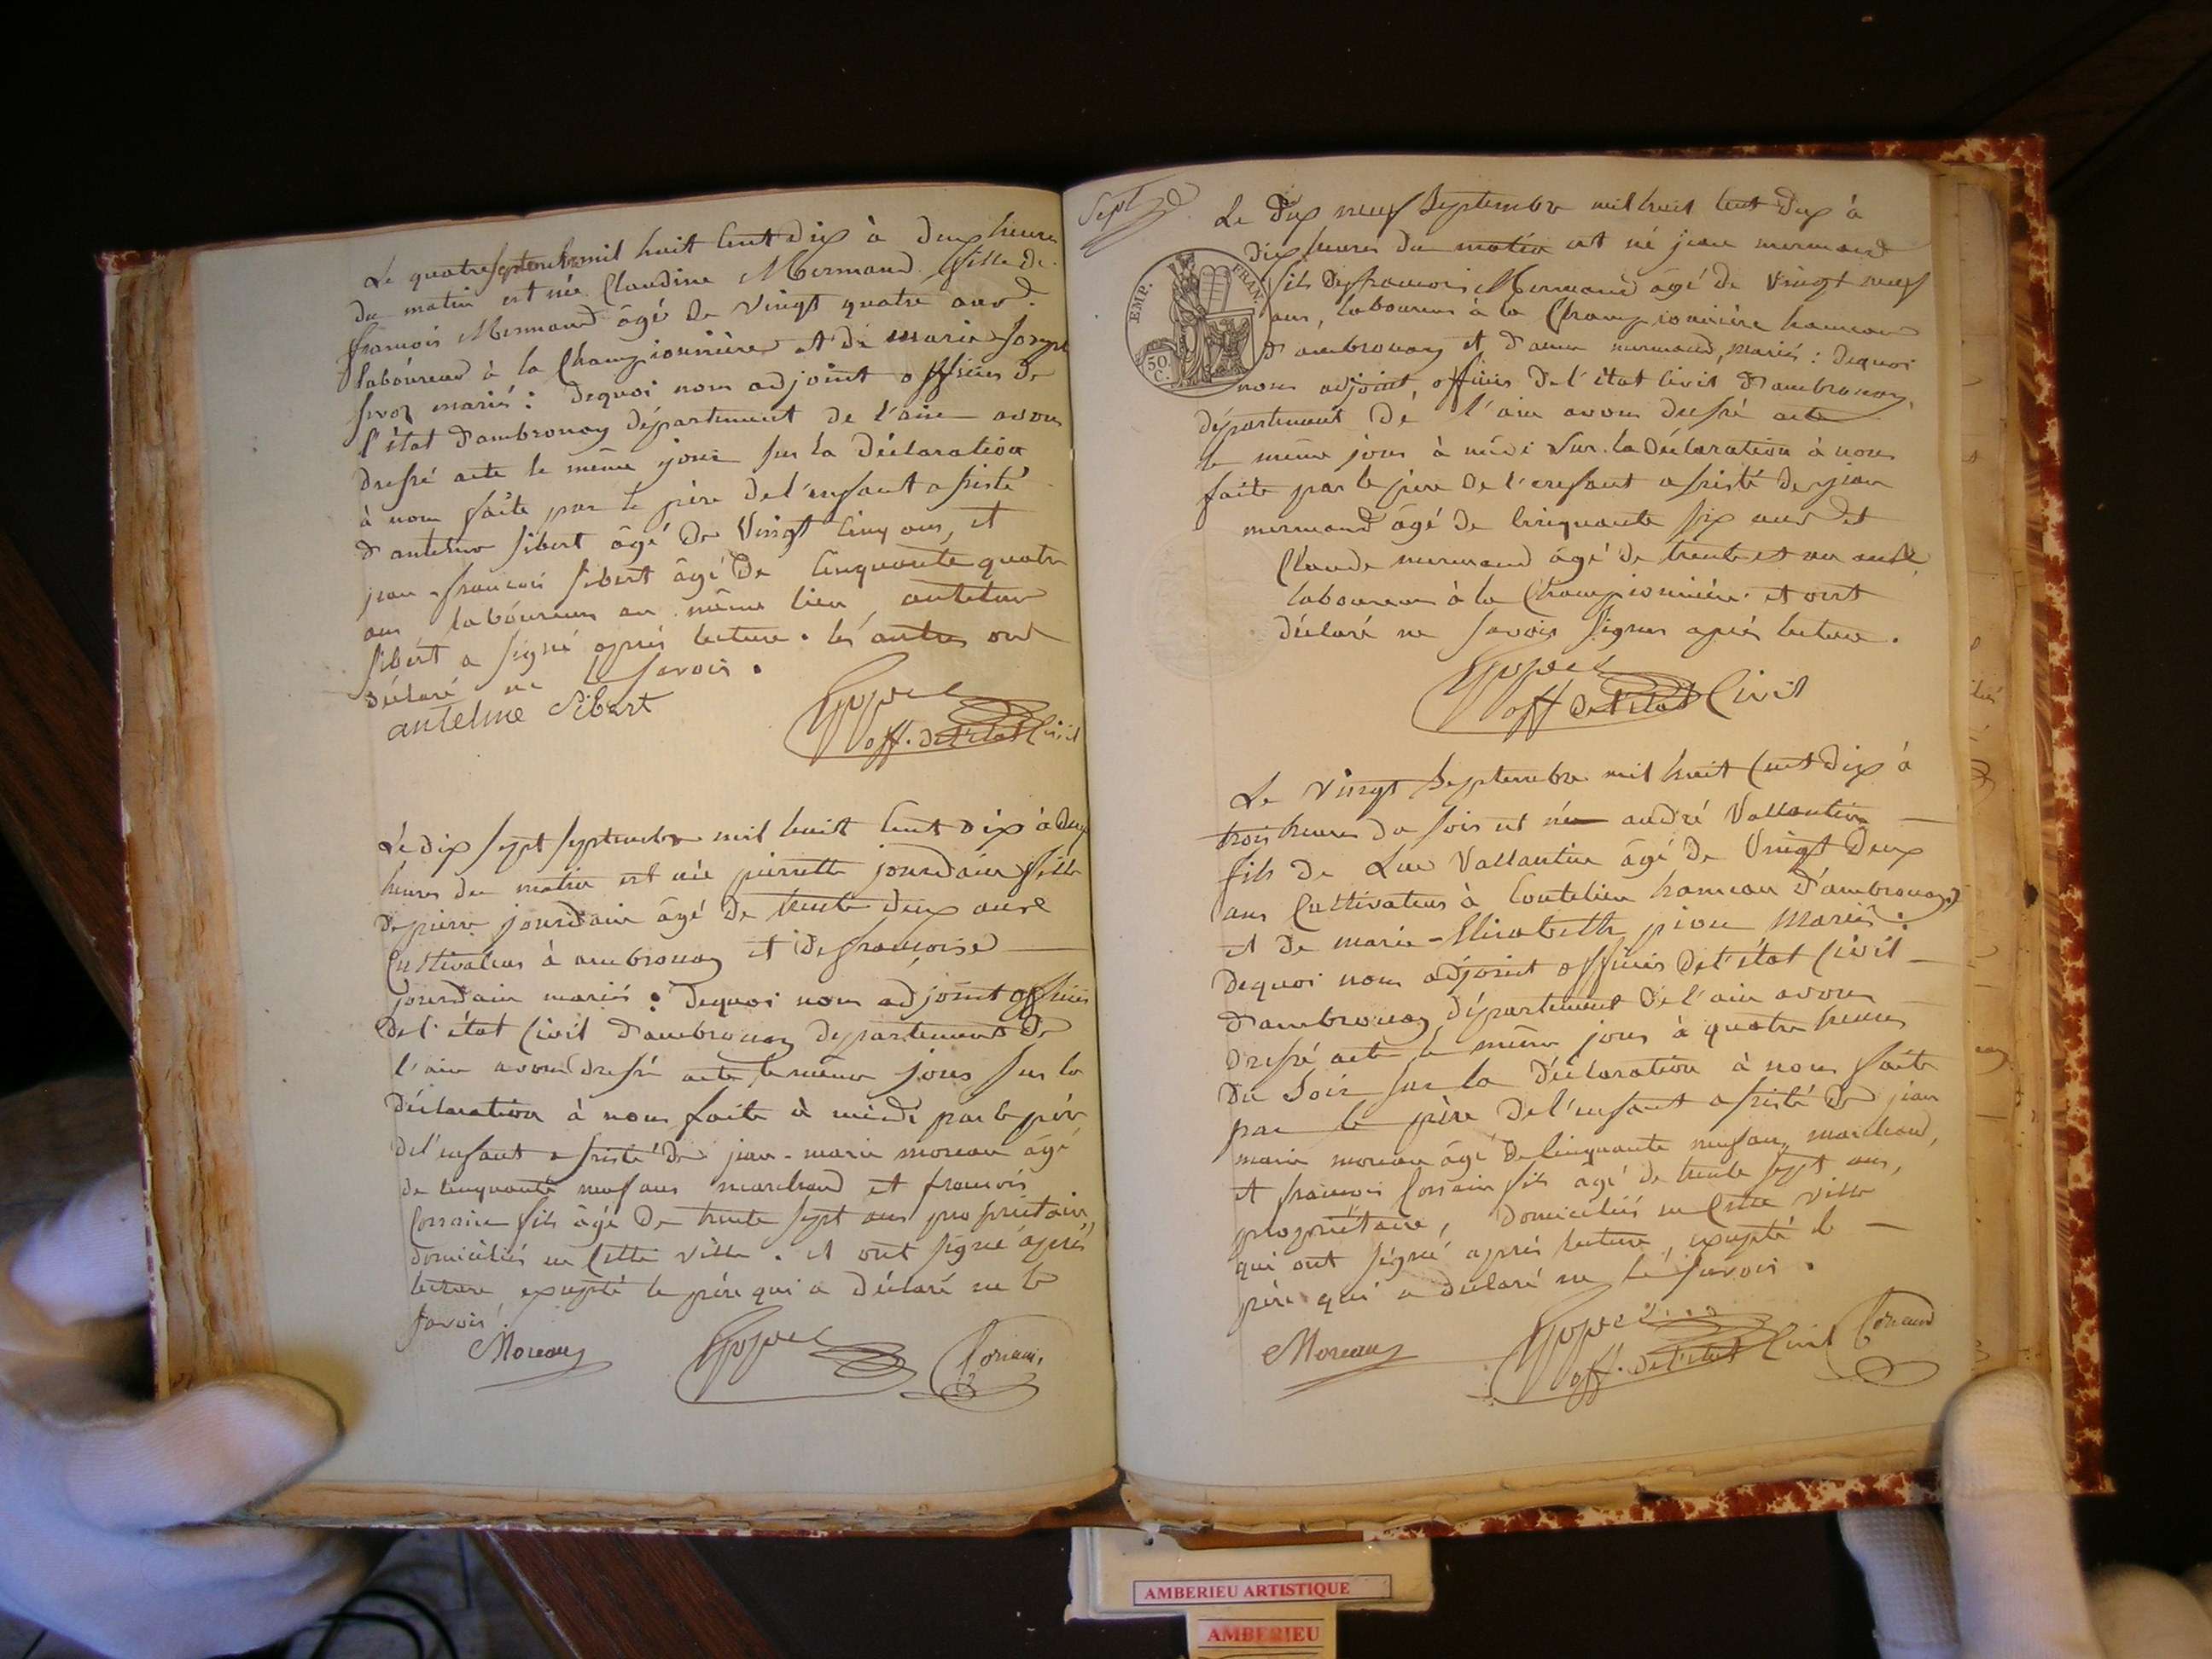 Le quatre septembre mil huit cent dix à deux heures
du matin est née Claudine Mermand fille de
françois Mermand âgé de vingt quatre ans
laboureur à la Championnière et de marie Joseph
mariés : dequoi nous adjoint officier de
l'état d'ambronay département de l'ain avons
dressé acte le même jour sur la déclaration
à nous faite par le père de l'enfant assisté
d'antelme sibert âgé de vingt cinq ans, et
jean-françois sibert âgé de cinquante quatre
ans laboureurs au même lieu, antelme
sibert a signé après lecture. les autres ont
déclaré ne savoir.
antelme Sibert
off. de l'état Civil
Le dix sept septembre mil huit cent dix à dix
heures du matin est née pierrette jourdain fille
de pierre jourdain âgé de trente deux ans
Cultivateur à ambronay et de françoise
jourdain mariés : dequoi nous adjoint officier
de l'état Civil d'ambronay departement de
l'ain avons dressé acte le même jour sur la
déclaration à nous faite à midi par le père
de l'enfant assisté de jean-marie moreau âgé
de cinquante neuf ans marchand et françois
fils âgé de trente sept ans propriétaire,
domiciliés en cette ville. et ont signé après
lecture excepté le père qui a déclaré ne le
savoir.
Moreau
Sept
Le dix neuf Septembre mil huit cent dix à
dix heures du matin est né jean mermand
fils de françois Mermand âgé de vingt neuf
ans, laboureur à la Championnière hameau
d'ambronay et d'anne mermand, mariés : dequoi
nous adjoint officier de l'état civil d'ambronay,
EMP. FRAN.
50 C.
département de l'ain avons dressé acte
le même jour à midi sur la déclaration à nous
faite par le père de l'enfant assisté de jean
mermand âgé de cinquante six ans et
Claude mermand âgé de trente et un ans
laboureurs à la Championnière et ont
déclaré ne savoir signer après lecture.
off de l'état Civil
Le vingt Septembre mil huit cent dix à
trois heures du soir est né andré Vallantin
fils de Luc Vallantin âgé de vingt deux
ans Cultivateur à Coutelieu hameau d'ambronay
et de marie-Elisabeth pion mariés :
dequoi nous adjoint officier de l'état Civil
d'ambronay département de l'ain avons
dressé acte le même jour à quatre heures
du soir sur la déclaration à nous faite
par le père de l'enfant assisté de jean
marie moreau âgé de cinquante neuf ans, marchand,
et françois fils âgé de trente sept ans,
propriétaire, domiciliés en cette ville
qui ont signé après lecture, excepté le
père qui a déclaré ne le savoir.
Moreau
off. de l'état Civil
AMBERIEU ARTISTIQUE
AMBERIEU